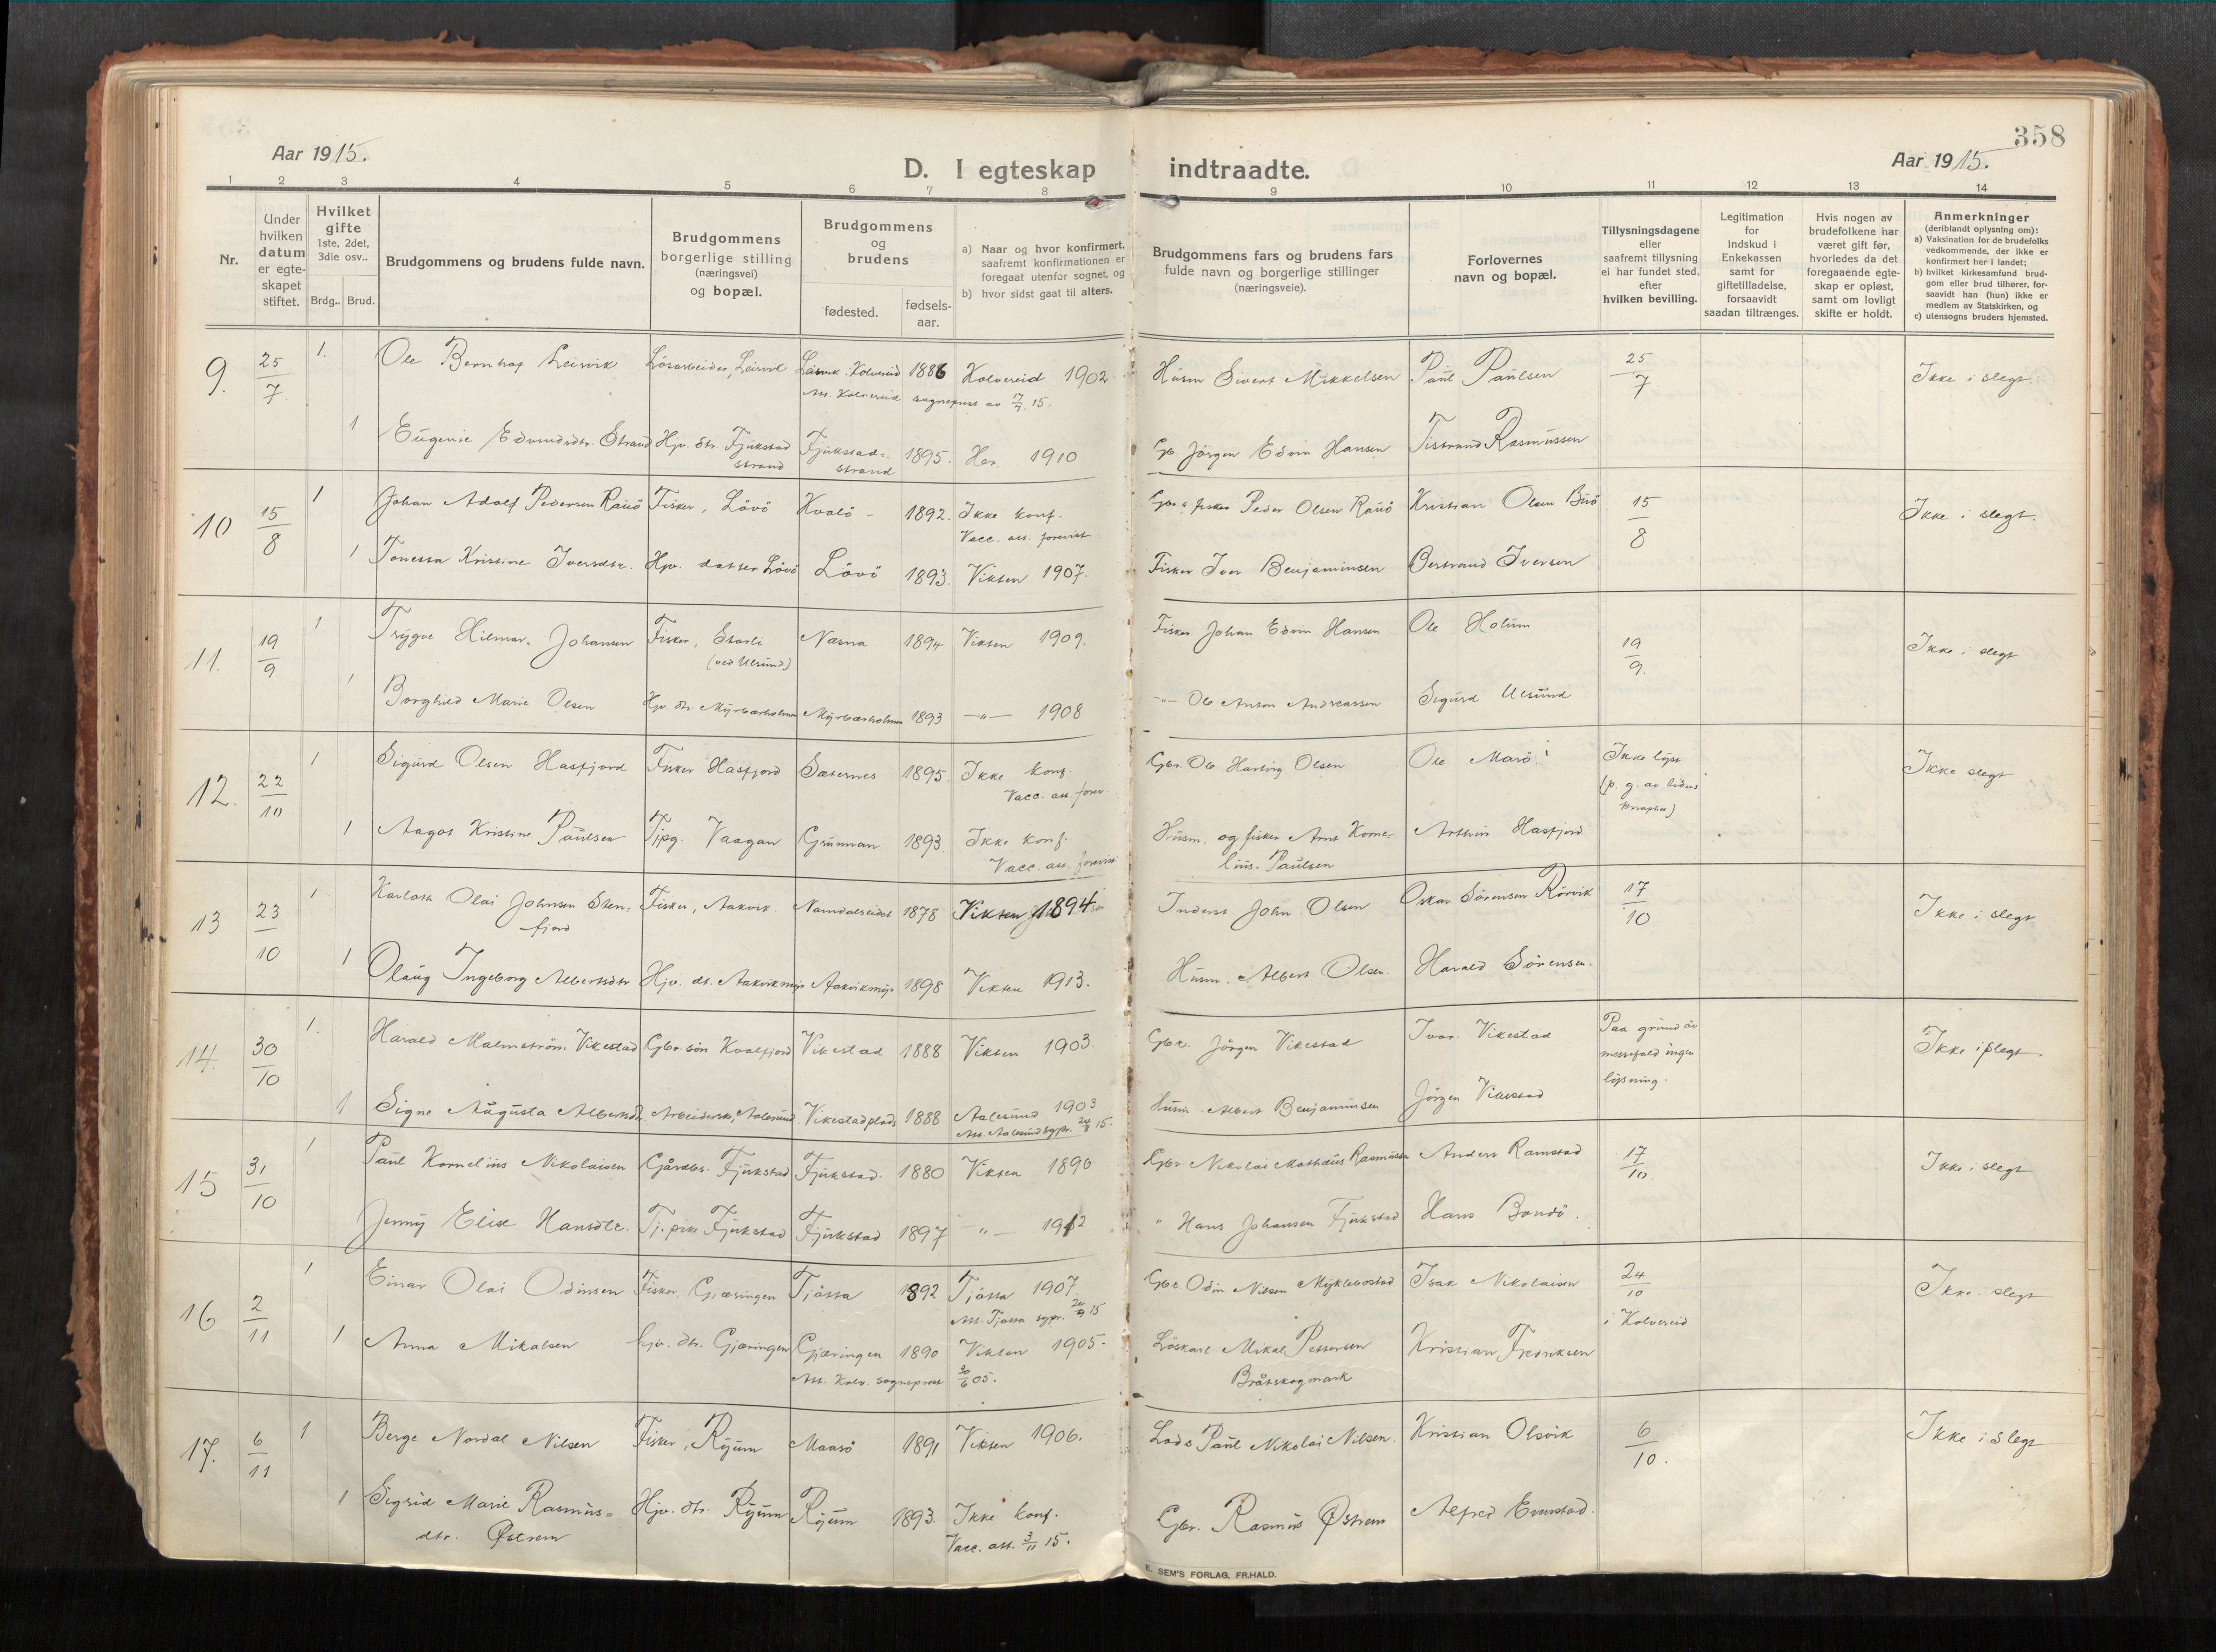 358
Aar 1915.
D. I egteskap indtraadte.
Aar 1915.
1 2 3 4 5 6 7 8 9 10 11 12 13 14
Nr.
Under hvilken datum er egte-skapet stiftet.
Hvilket gifte 1ste, 2det, 3die osv..
Brdg.. Brud.
Brudgommens og brudens fulde navn.
Brudgommens borgerlige stilling (næringsvei) og bopæl.
Brudgommens og brudens
fødested.
fødsels-aar.
a) Naar og hvor konfirmert, saafremt konfirmationen er foregaat utenfor sognet, og
b) hvor sidst gaat til alters.
Brudgommens fars og brudens fars fulde navn og borgerlige stillinger (næringsveie).
Forlovernes navn og bopæl.
Tillysningsdagene eller saafremt tillysning ei har fundet sted, efter hvilken bevilling.
Legitimation for indskud i Enkekassen samt for giftetilladelse, forsaavidt saadan tiltrænges.
Hvis nogen av brudefolkene har været gift før, hvorledes da det foregaaende egte-skap er opløst, samt om lovligt skifte er holdt.
Anmerkninger (deriblandt oplysning om):
a) Vaksination for de brudefolks vedkommende, der ikke er konfirmert her i landet;
b) hvilket kirkesamfund brud-gom eller brud tilhører, for-saavidt han (hun) ikke er medlem av Statskirken, og
c) utensogns bruders hjemsted.
9. 25/7. 1. Ole Bernhof Leirvik Lösarbeider, Leirvik Leirvik. Kolvereid 1886 Kolvereid 1902 Husm Sivert Mikkelsen Paul Paulsen 25/7 Ikke i slegt.
Att. Kolvereid sogneprest av 17/7 15.
1 Eugenie Edvindsdtr. Strand Hjv. dtr. Fjukstad strand Fjukstad-strand 1895. Her. 1910 Gb. Jörgen Edvin Hansen Tistrand Rasmussen
10 15/8 1 Johan Adolf Pedersen Rauö Fisker, Lövö Kvalö - 1892. Ikke konf. Gbr. & fisker Peder Olsen Rauö Kristian Olsen Buö 15/8 Ikke i slegt.
Vacc. att. forevist
1 Jonessa Kristine Iversdtr. Hjv. datter Lövö Lövö 1893. Vikten 1907. Fisker Iver Benjaminsen Bertrand Iversen
11. 19/9 1 Trygve Hilmar Johansen Fisker, Storli (ved Ulsund) Næsna 1894 Vikten 1909. Fisker Johan Edvin Hansen Ole Holum 19/9. Ikke i slegt
1 Borghild Marie Olsen Hjv. dtr. Myrbærholmen Myrbærholmen 1893 -"- 1908 -"- Ole Anton Andreassen Sigurd Ulsund
12. 22/10 1 Sigurd Olsen Hasfjord Fisker Hasfjord Sæternes 1895. Ikke konf. Gbr. Ole Hartvig Olsen Ole Marö Ikke lyst Ikke slegt
Vacc. att. forev. (p. g. av tidens knaphet)
1 Aagot Kristine Paulsen Tjpg. Vaagan Grunnan 1893. Ikke konf. Husm. og fisker Arnt Korne- Arthur Hasfjord
Vacc. att. forevist lius Paulsen
13 23/10 1 Karloth Olai Johnsen Sten- Fisker, Aakvik. Namdalseidet 1878 Vikten 1894 Inderst John Olsen Oskar Sörensen Rörvik 17/10 Ikke i slegt
fjord
1 Olaug Ingeborg Albertsdtr Hjv. dt. Aakvikmyr Aakvikmyr 1898 Vikten 1913. Husm. Albert Olsen. Harald Sörensen.
14. 30/10 1. Harald Malmström Vikestad Gbr. sön Kvalfjord Vikestad 1888 Vikten 1903. Gbr. Jörgen Vikestad Ivar Vikestad Paa grund av Ikke i slegt.
messefald ingen lysning.
1 Signe Augusta Albertsdtr. Arbeiderske, Aalesund Vikestadplads 1888 Aalesund 1903 Husm. Albert Benjaminsen Jörgen Vikestad
Att. Aalesund sgpr. 15.
15 31/10 1 Paul Kornelius Nikolaisen Gårdbr. Fjukstad Fjukstad. 1880 Vikten 1896 Gbr. Nikolai Mathæus Rasmussen Anders Ramstad 17/10. Ikke i slegt
Jenny Elise Hansdtr. Tj. pike Fjukstad Fjukstad 1897 -"- 1912 " Hans Johansen Fjukstad Hans Bondö.
16 2/11 1 Einar Olai Odinsen Fisker, Gjæringen Tjötta 1892 Tjötta 1907 Gbr. Odin Nilsen Myklebostad Isak Nikolaisen 24/10 Ikke i slegt
Att. Tjötta sgpr. 15 i Kolvereid
1 Anna Mikalsen hjv. dtr. Gjæringen Gjæringen 1890 Vikten 1905. Löskarl Mikal Pettersen Kristian Fredriksen
Att. Kolv. sogneprest 30/6 05. Bråtskogmark
17. 6/11 1 Berge Nordal Nilsen Fisker, Ryum Maasö 1891 Vikten 1906. Lods Paul Nikolai Nilsen. Kristian Olsvik 6/10. Ikke i slegt
1 Sigrid Marie Rasmus- Hjv. dtr. Ryum Ryum 1893. Ikke konf. Gbr. Rasmus Østrem Alfred Evenstad.
dtr. Østrem Vacc. att. 3/11 15.
E. SEM'S FORLAG, FR.HALD.